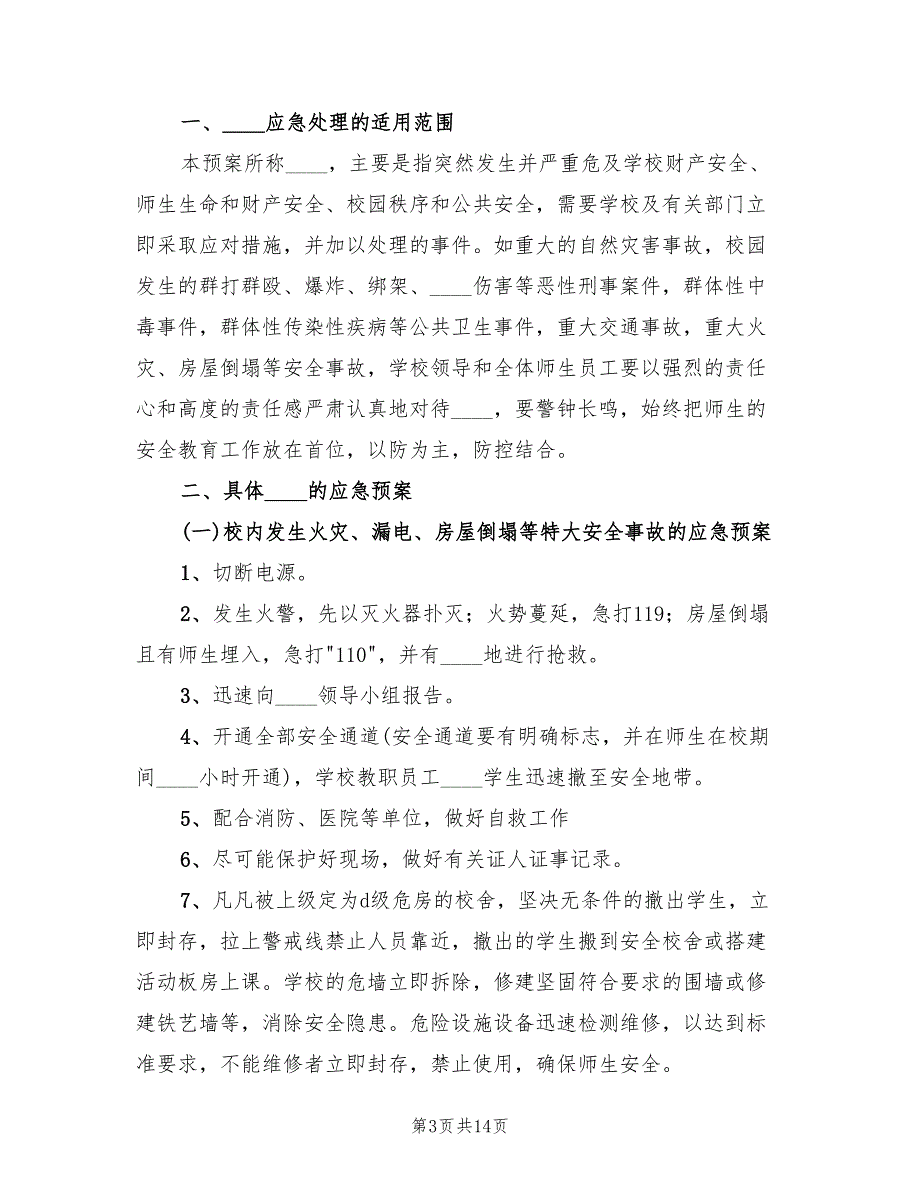 一、____应急处理的适用范围
本预案所称____，主要是指突然发生并严重危及学校财产安全、
师生生命和财产安全、校园秩序和公共安全，需要学校及有关部门立
即采取应对措施，并加以处理的事件。如重大的自然灾害事故，校园
发生的群打群殴、爆炸、绑架、____伤害等恶性刑事案件，群体性中
毒事件，群体性传染性疾病等公共卫生事件，重大交通事故，重大火
灾、房屋倒塌等安全事故，学校领导和全体师生员工要以强烈的责任
心和高度的责任感严肃认真地对待____，要警钟长鸣，始终把师生的
安全教育工作放在首位，以防为主，防控结合。
二、具体____的应急预案
(一)校内发生火灾、漏电、房屋倒塌等特大安全事故的应急预案
1、切断电源。
2、发生火警，先以灭火器扑灭；火势蔓延，急打119；房屋倒塌
且有师生埋入，急打"110"，并有____地进行抢救。
3、迅速向____领导小组报告。
4、开通全部安全通道(安全通道要有明确标志，并在师生在校期
间____小时开通)，学校教职员工____学生迅速撤至安全地带。
5、配合消防、医院等单位，做好自救工作
6、尽可能保护好现场，做好有关证人证事记录。
7、凡凡被上级定为d级危房的校舍，坚决无条件的撤出学生，立
即封存，拉上警戒线禁止人员靠近，撤出的学生搬到安全校舍或搭建
活动板房上课。学校的危墙立即拆除，修建坚固符合要求的围墙或修
建铁艺墙等，消除安全隐患。危险设施设备迅速检测维修，以达到标
准要求，不能维修者立即封存，禁止使用，确保师生安全。
第3页共14页